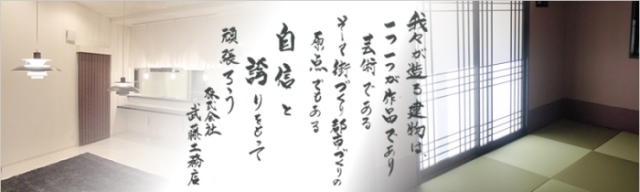 我々が造る建物は
一つ一つが作品であり
芸術である
そして街づくり都市づくりの
原点でもある
自信と
誇りをもって
頑張ろう
株式会社
武藤工務店